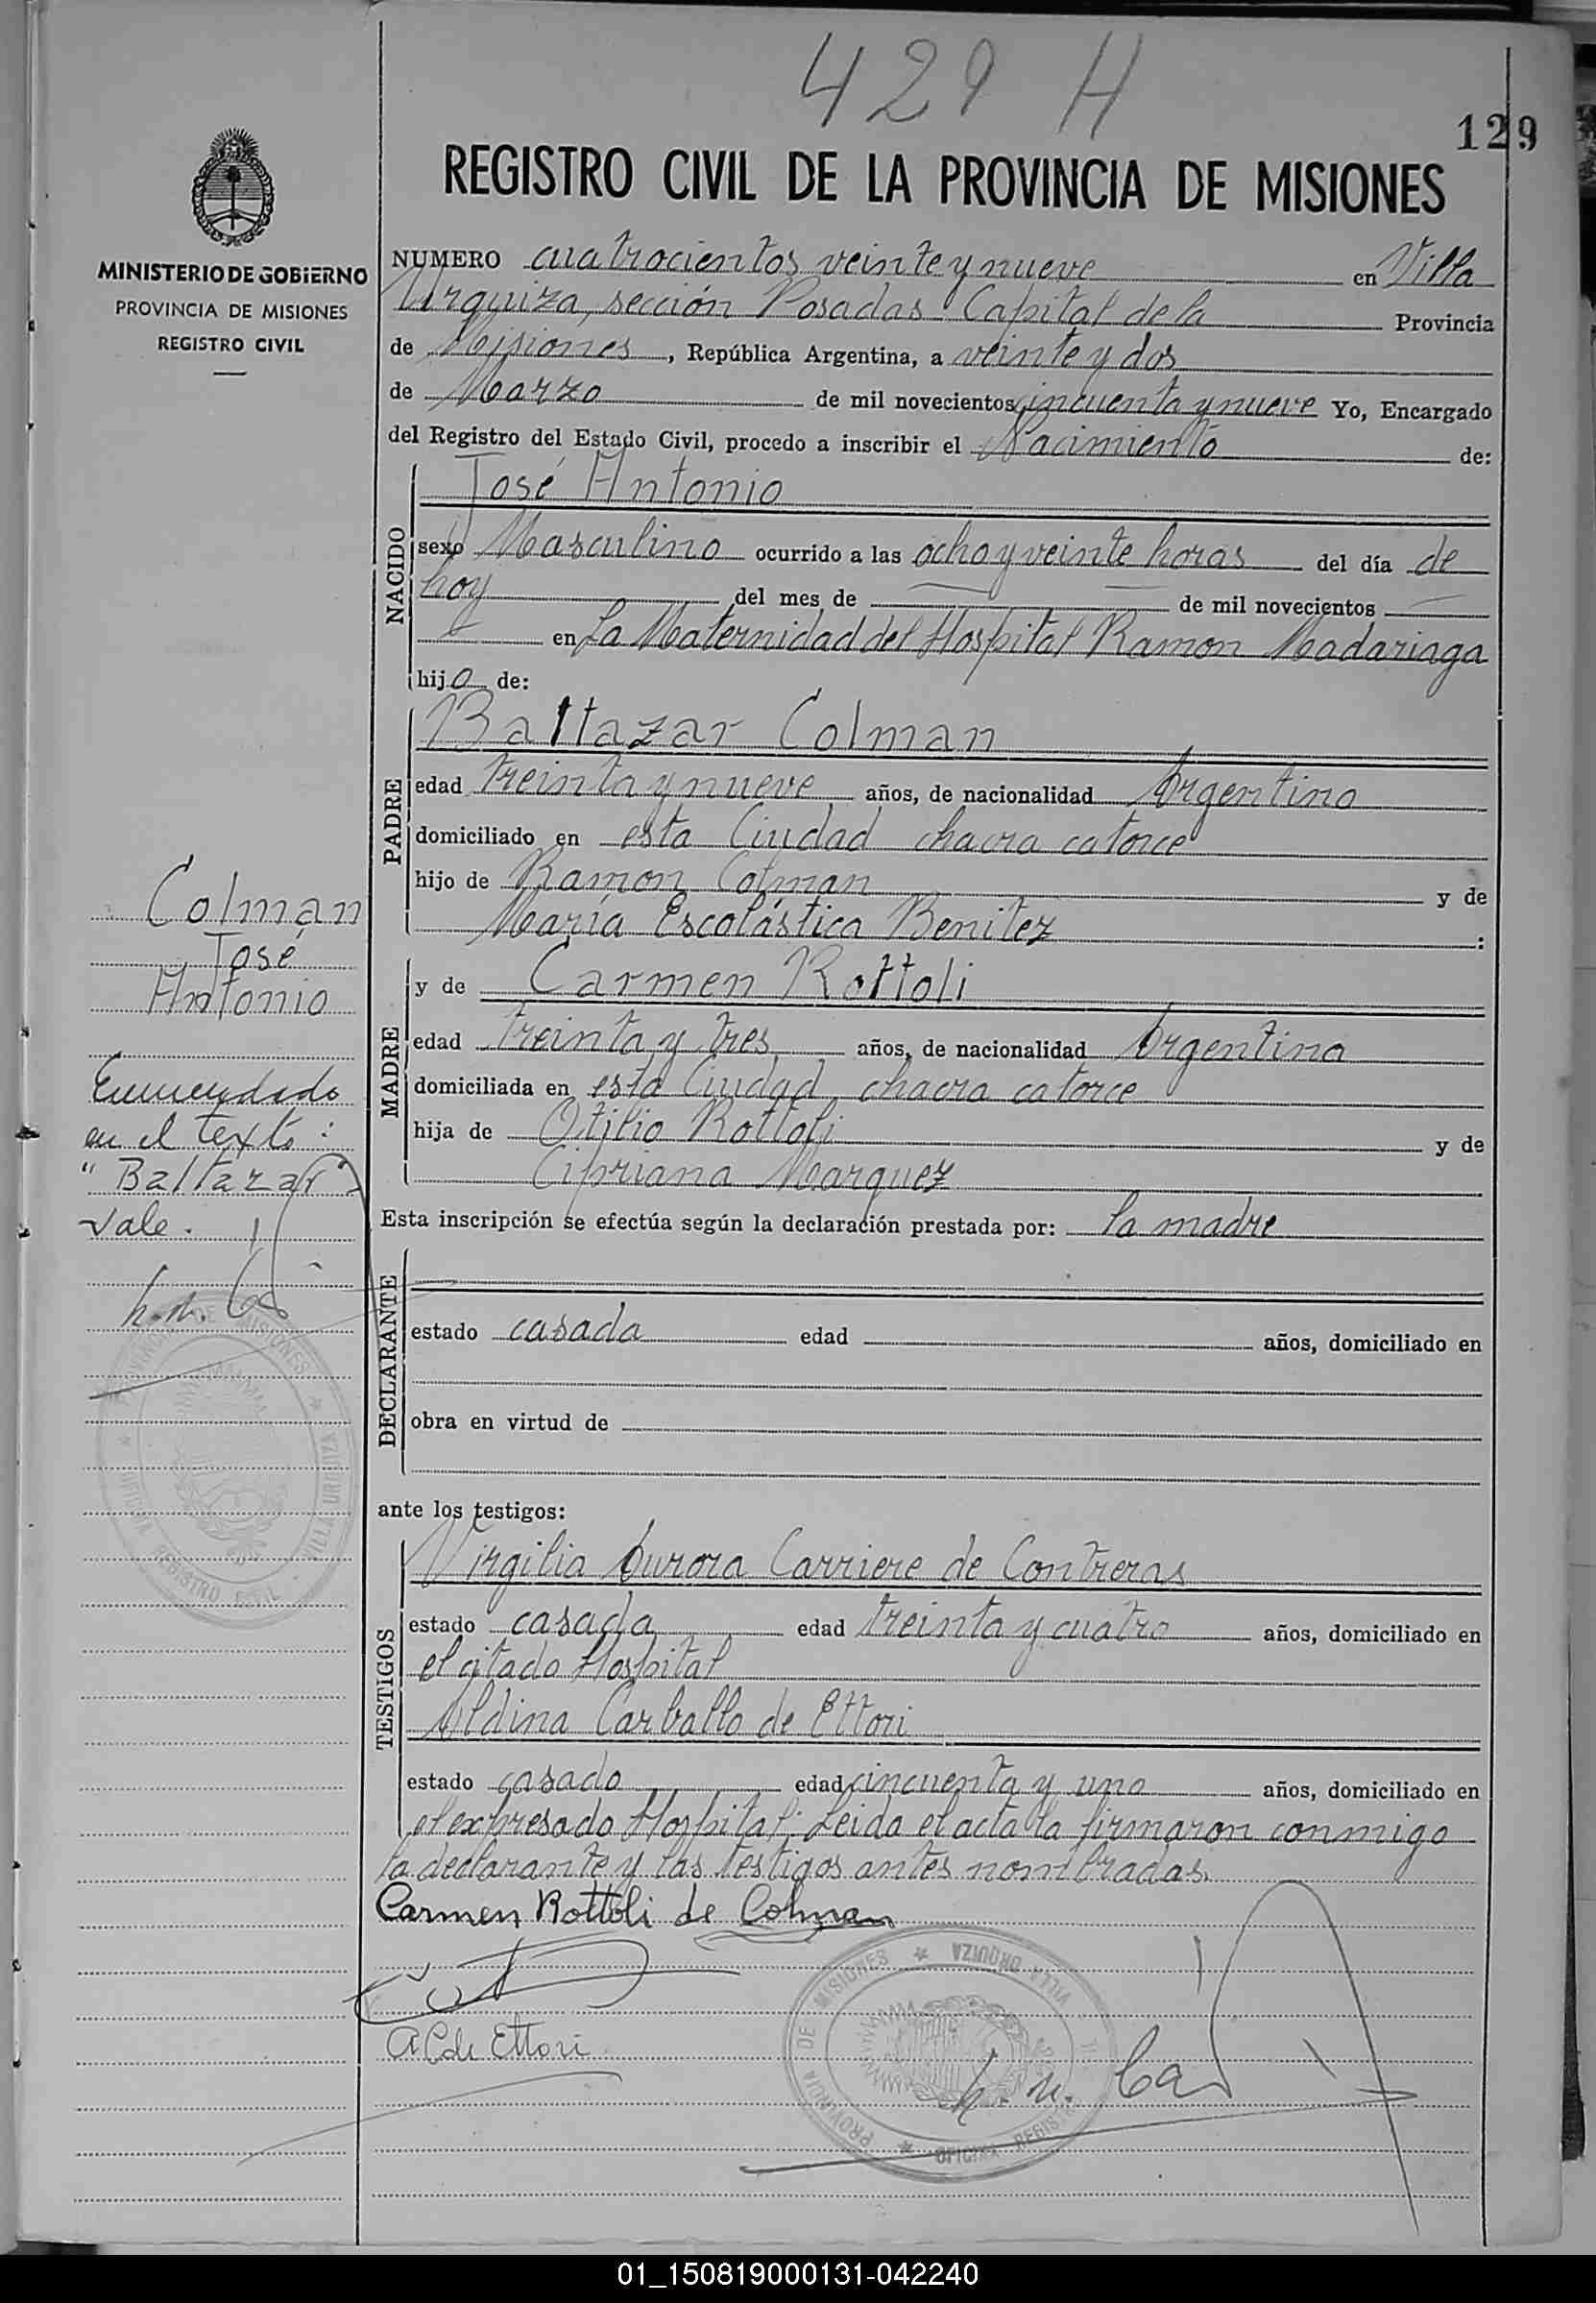 429 H
129
REGISTRO CIVIL DE LA PROVINCIA DE MISIONES
MINISTERIO DE GOBIERNO
PROVINCIA DE MISIONES
REGISTRO CIVIL
NUMERO cuatrocientos veinte y nueve en Villa
Urquiza, sección Posadas Capital de la Provincia
de Misiones, República Argentina, a veinte y dos
de Marzo de mil novecientos cincuenta y nueve Yo, Encargado
del Registro del Estado Civil, procedo a inscribir el Nacimiento de:
NACIDO
José Antonio
sexo Masculino ocurrido a las ocho y veinte horas del día de
hoy del mes de — de mil novecientos —
en La Maternidad del Hospital Ramon Madariaga
hijo de:
PADRE
Baltazar Colman
edad treinta y nueve años, de nacionalidad Argentino
domiciliado en esta Ciudad chacra catorce
hijo de Ramon Colman y de
María Escolástica Benitez :
MADRE
y de Carmen Rottoli
edad treinta y tres años, de nacionalidad Argentina
domiciliada en esta Ciudad chacra catorce
hija de Otilio Rottoli y de
Cipriana Marquez
Esta inscripción se efectúa según la declaración prestada por: la madre
DECLARANTE
estado casada edad años, domiciliado en
obra en virtud de
ante los testigos:
TESTIGOS
Virgilia Aurora Carriere de Contreras
estado casada edad treinta y cuatro años, domiciliado en
el citado Hospital
Aldina Carballo de Ettori
estado casado edad cincuenta y uno años, domiciliado en
el expresado Hospital. Leida el acta la firmaron conmigo
la declarante y las testigos antes nombradas.
Carmen Rottoli de Colman
A C de Ettori
Colman
José
Antonio
Enmendado
en el texto:
"Baltazar"
Vale.
PROVINCIA DE MISIONES * VILLA URQUIZA
OFICINA REGISTRO CIVIL
PROVINCIA DE MISIONES * VILLA URQUIZA
OFICINA REGISTRO
01_150819000131-042240